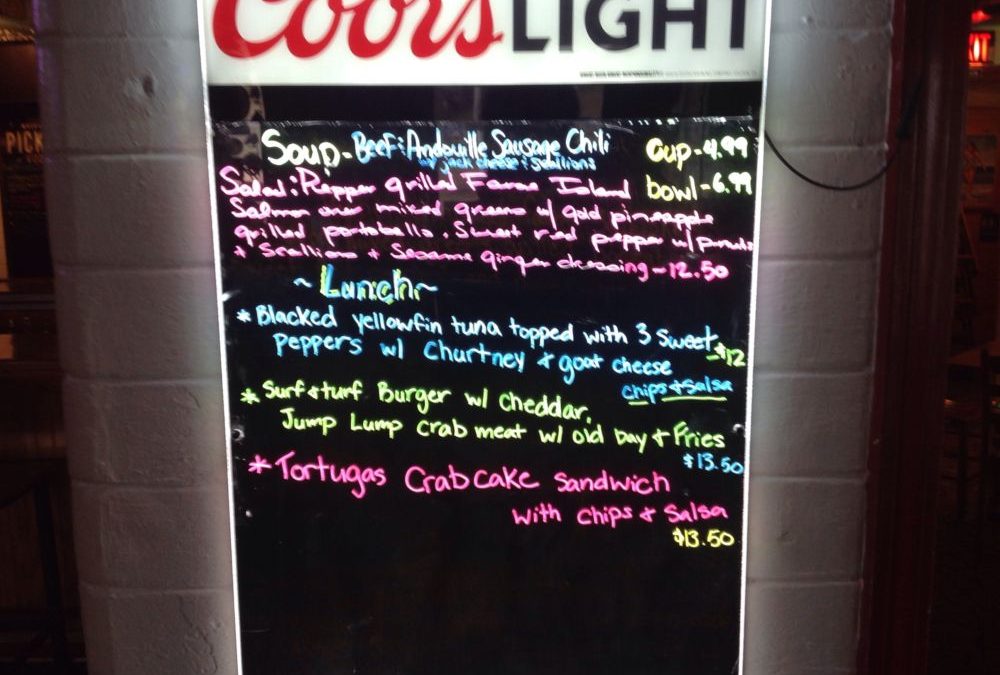 Coors LIGHT
EXIT
PICK
Soup - Beef & Andouille Sausage Chili cup - 4.99
w/ jack cheese & scallions
bowl - 6.99
Salad: Pepper grilled Faroe Island
Salmon over mixed greens w/ gold pineapple
grilled portobello, Sweet red pepper w/
+ Scallion + Sesame ginger dressing - 12.50
~ Lunch ~
* Blacked yellowfin tuna topped with 3 Sweet
peppers w/ Churtney & goat cheese - $12
chips & Salsa
* Surf & turf Burger w/ cheddar,
Jump Lump Crab meat w/ old bay & Fries
$13.50
* Tortugas Crabcake Sandwich
with Chips & Salsa
$13.50